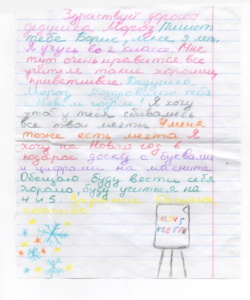 Здраствуй дорогой
дедушка Мороз Пишет
тебе Борис, мне 9 лет.
Я учусь во 2 классе. Мне
тут очень нравится все
учителя такие хорошие,
приветливые. Дедушка
Мороз Поздравляю тебя
с Новым годом! Я хочу
чтоб у тебя сбывались
все твои мечты. У меня
тоже есть мечта Я
хочу на Новый год в
подарок доску с буквами
и цифрами на магните.
Обещаю буду вести себя
хорошо, буду учиться на
4 и 5. Заранее большое
спасибо